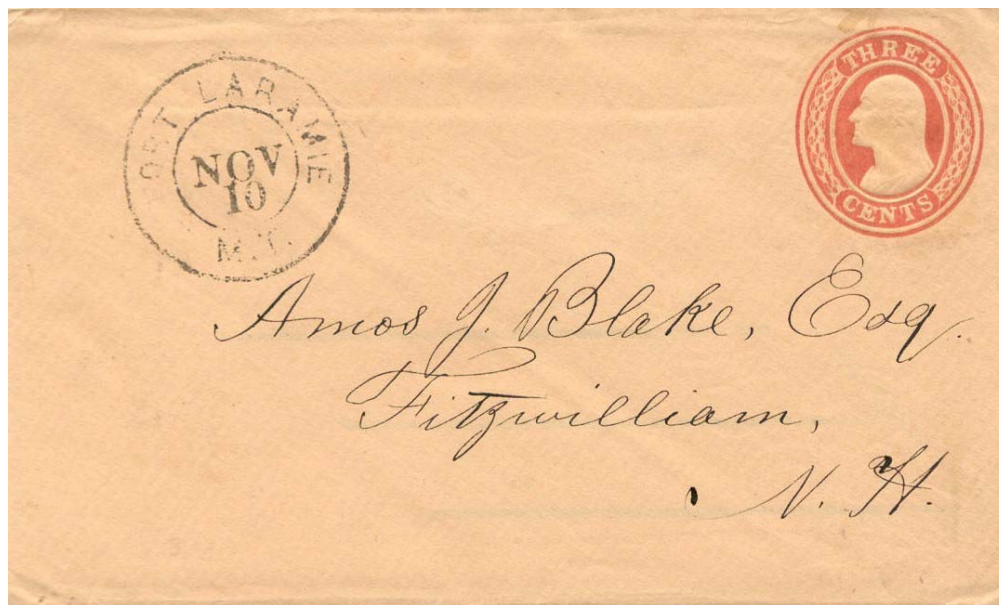 FORT LARAMIE
NOV
10
THREE
CENTS
Amos J. Blake, Esq.
Fitzwilliam,
N. H.